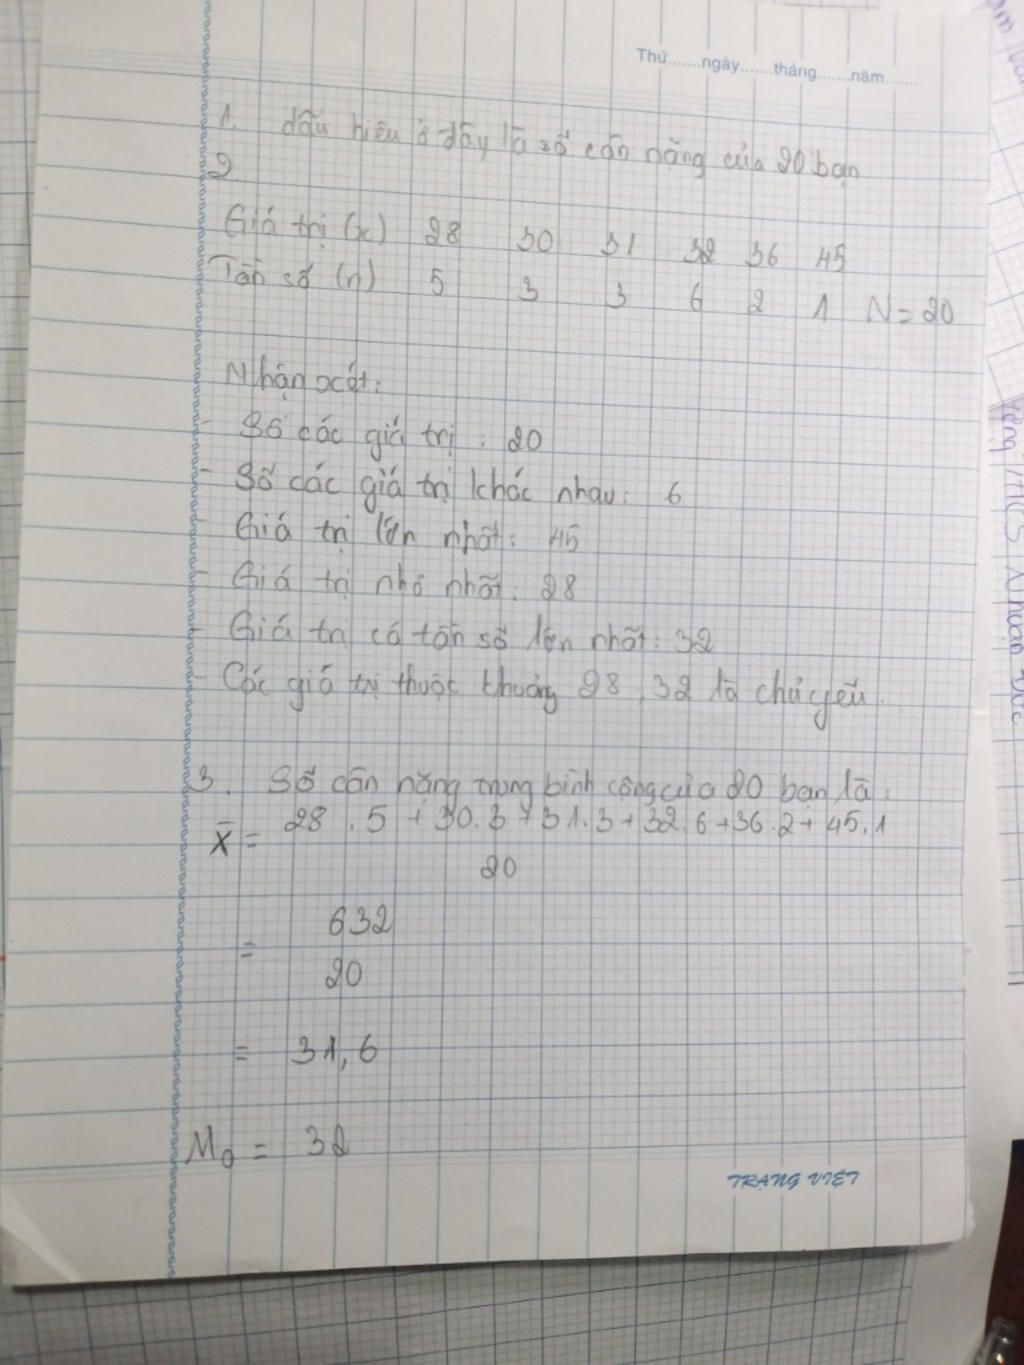 Thứ.......ngày.......tháng.......năm.......
1. dấu hiệu ở đây là số cân nặng của 20 bạn
2
Giá trị (x) 28 30 31 32 36 45
Tần số (n) 5 3 3 6 2 1 N = 20
Nhận xét:
- Số các giá trị : 20
- Số các giá trị khác nhau: 6
- Giá trị lớn nhất: 45
- Giá trị nhỏ nhất: 28
- Giá trị có tần số lớn nhất: 32
- Các giá trị thuộc khoảng 28, 32 là chủ yếu.
3. Số cân nặng trung bình cộng của 20 bạn là:
X̄ = 28 . 5 + 30. 3 + 31. 3 + 32. 6 + 36 . 2 + 45. 1
20
= 632
20
= 31,6
M₀ = 32
TRANG VIET